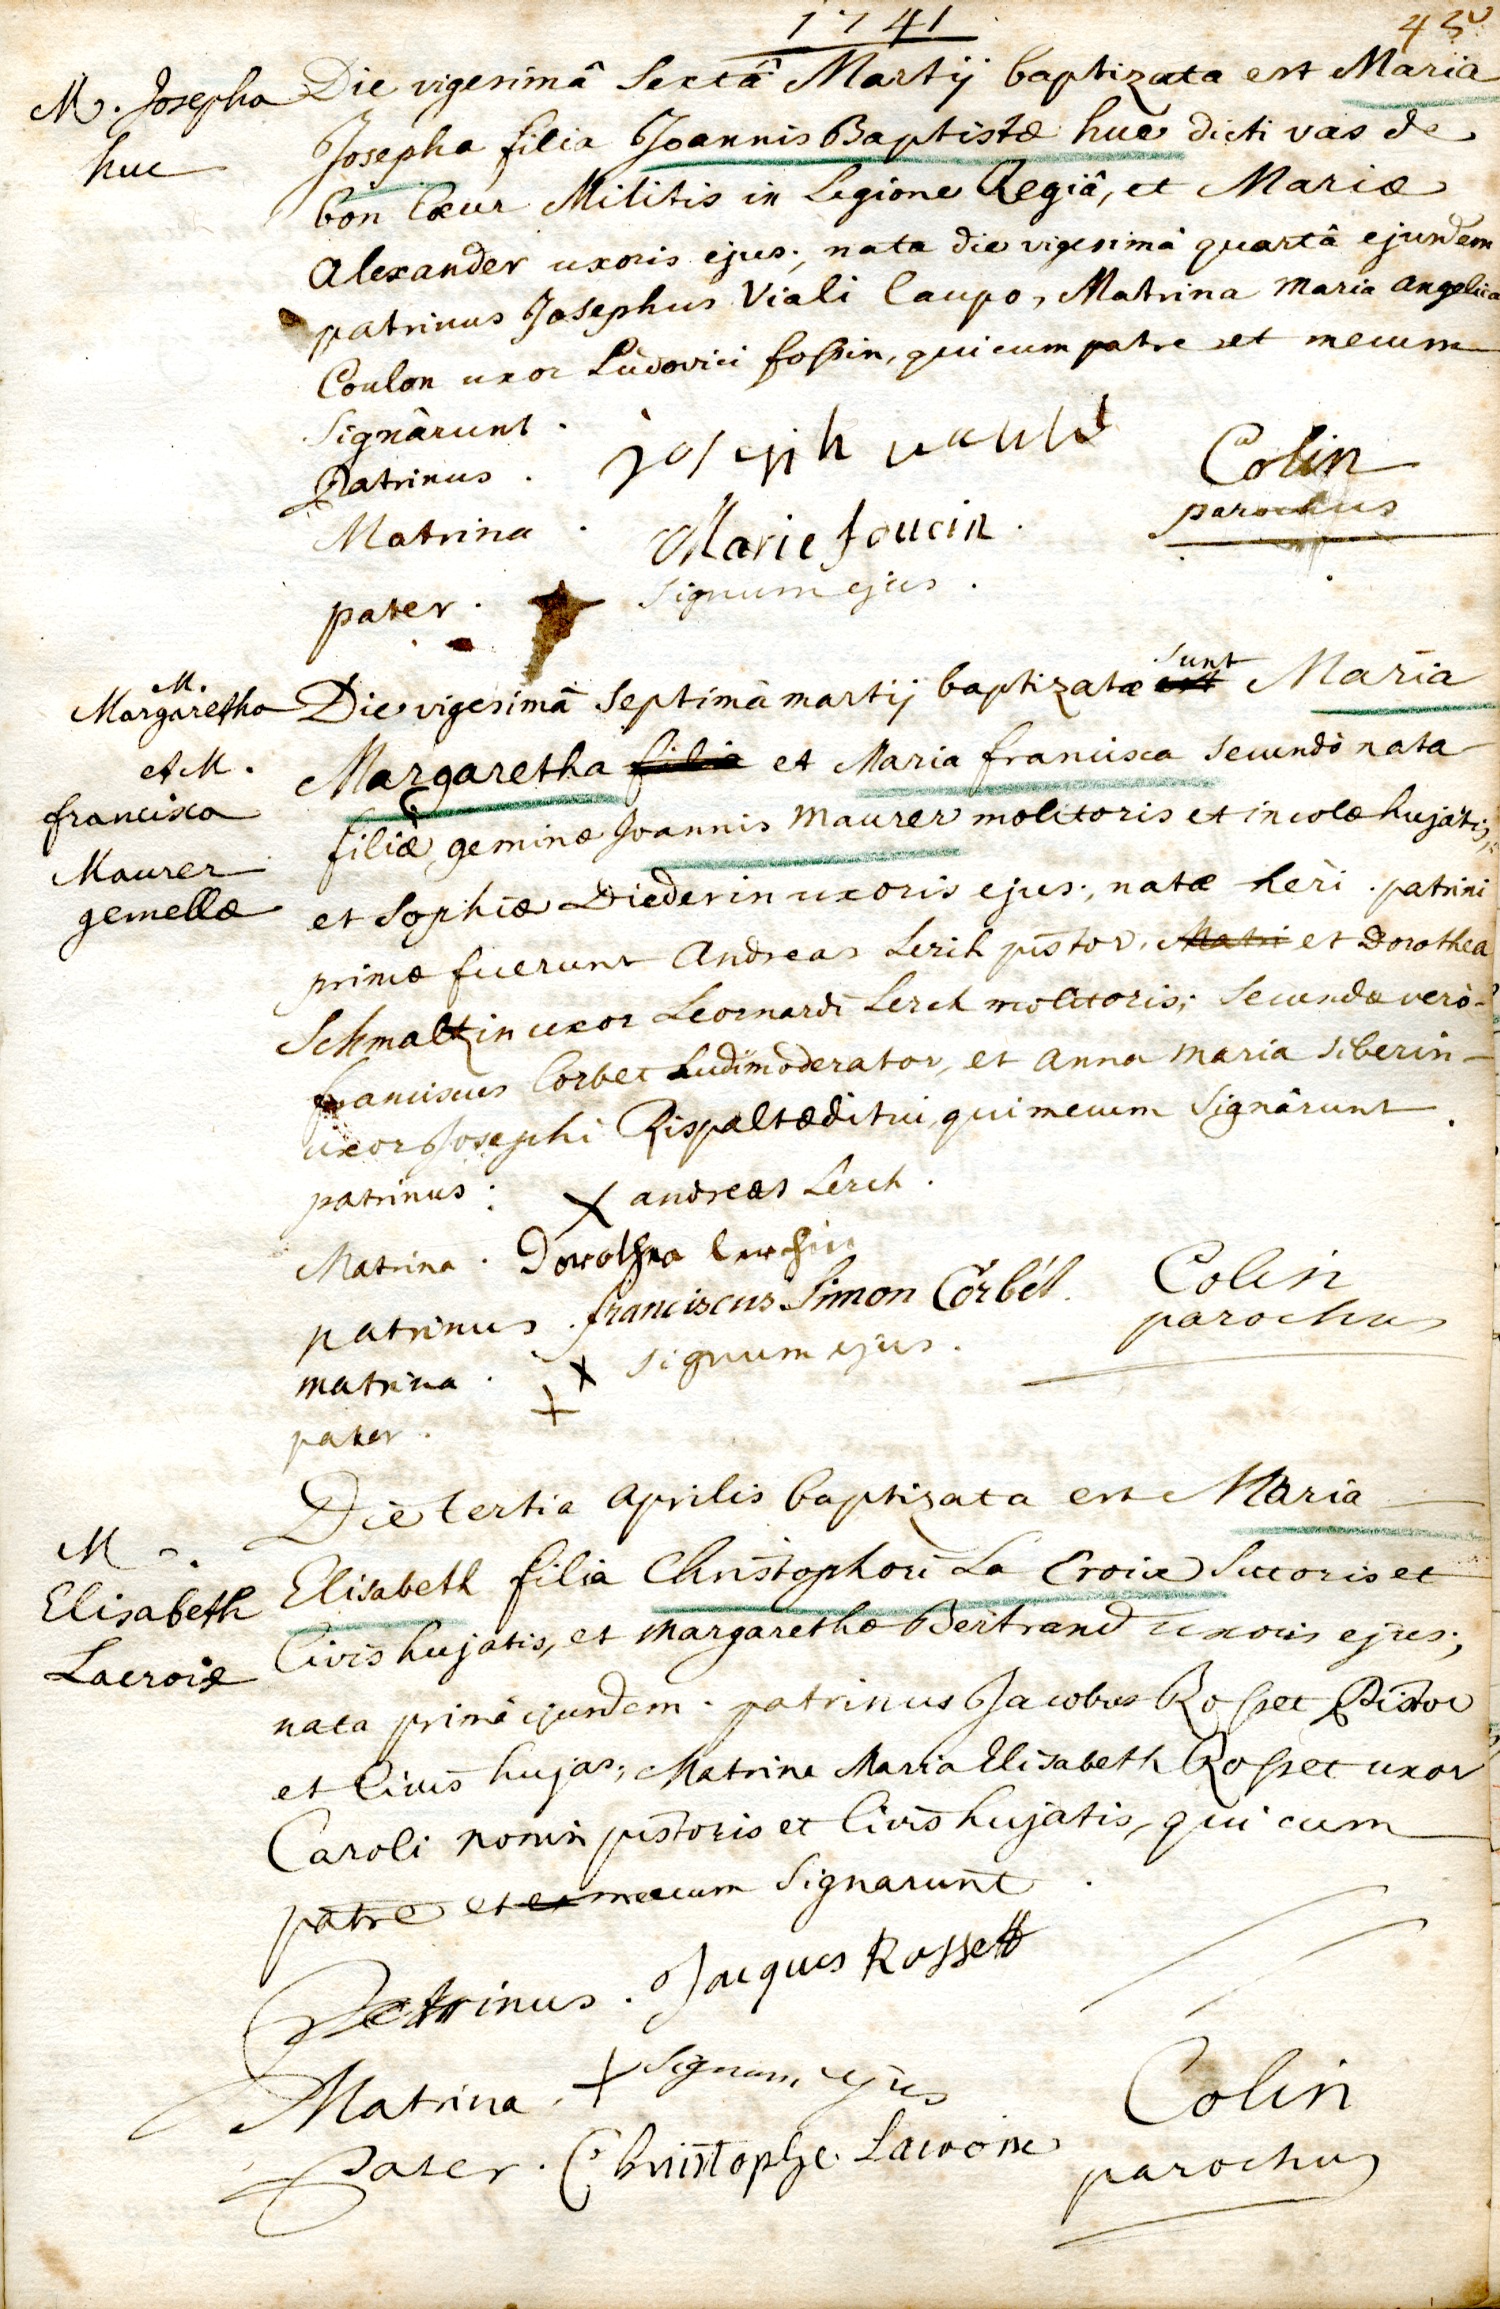 1741
M. Josepha
huc
Die vigesimâ Sextâ Martij baptizata est Maria
Josepha filia Joannis Baptistæ huc dicti vas de
bon Cœur Militis in Legione Regiâ, et Mariæ
Alexander uxoris ejus; nata die vigesimâ quartâ ejusdem
patrinus Josephus Viali Caupo, Matrina Maria Angelica
Coulon uxor Ludovici fossin, qui cum patre et mecum
Signârunt.
Patrinus. joseph
Matrina. Marie foucin.
pater. Signum ejus.
Colin
parochus
M.
Margaretha
et M.
francisca
Maurer
gemellæ
Die vigesimâ Septimâ martij baptizatæ est sunt Maria
Margaretha filia et Maria francisca secundò nata
filiæ geminæ Joannis Maurer molitoris et incolæ hujatis,
et Sophiæ Diederin uxoris ejus; natæ heri. patrini
primæ fuerunt Andreas Lerch pistor, Matri et Dorothea
Schmaltzin uxor Leonardi Lerch molitoris; Secundæ verò
franciscus Corbet Ludimoderator, et Anna Maria Siberin
uxor Josephi Rispalt æditui, qui mecum Signârunt.
patrinus: X andreas Lerch.
Matrina. Dorothea lerchin
patrinus. franciscus Simon Corbét.
matrina. X signum ejus.
pater. +
Colin
parochus
M.
Elisabeth
Lacroix
Die tertia Aprilis baptizata est Maria
Elisabeth filia Christophori La Croix Sutoris et
Civis hujatis, et Margarethæ Bertrand uxoris ejus;
nata primâ ejusdem. patrinus Jacobus Rosset Pistor
et Civis hujas; Matrina Maria Elisabeth Rosset uxor
Caroli nonin pistoris et Civis hujatis, qui cum
patre et et mecum Signarunt.
Patrinus. Jacques Rossett
Matrina. + Signum ejus
Pater. Christophe Lacroix
Colin
parochus